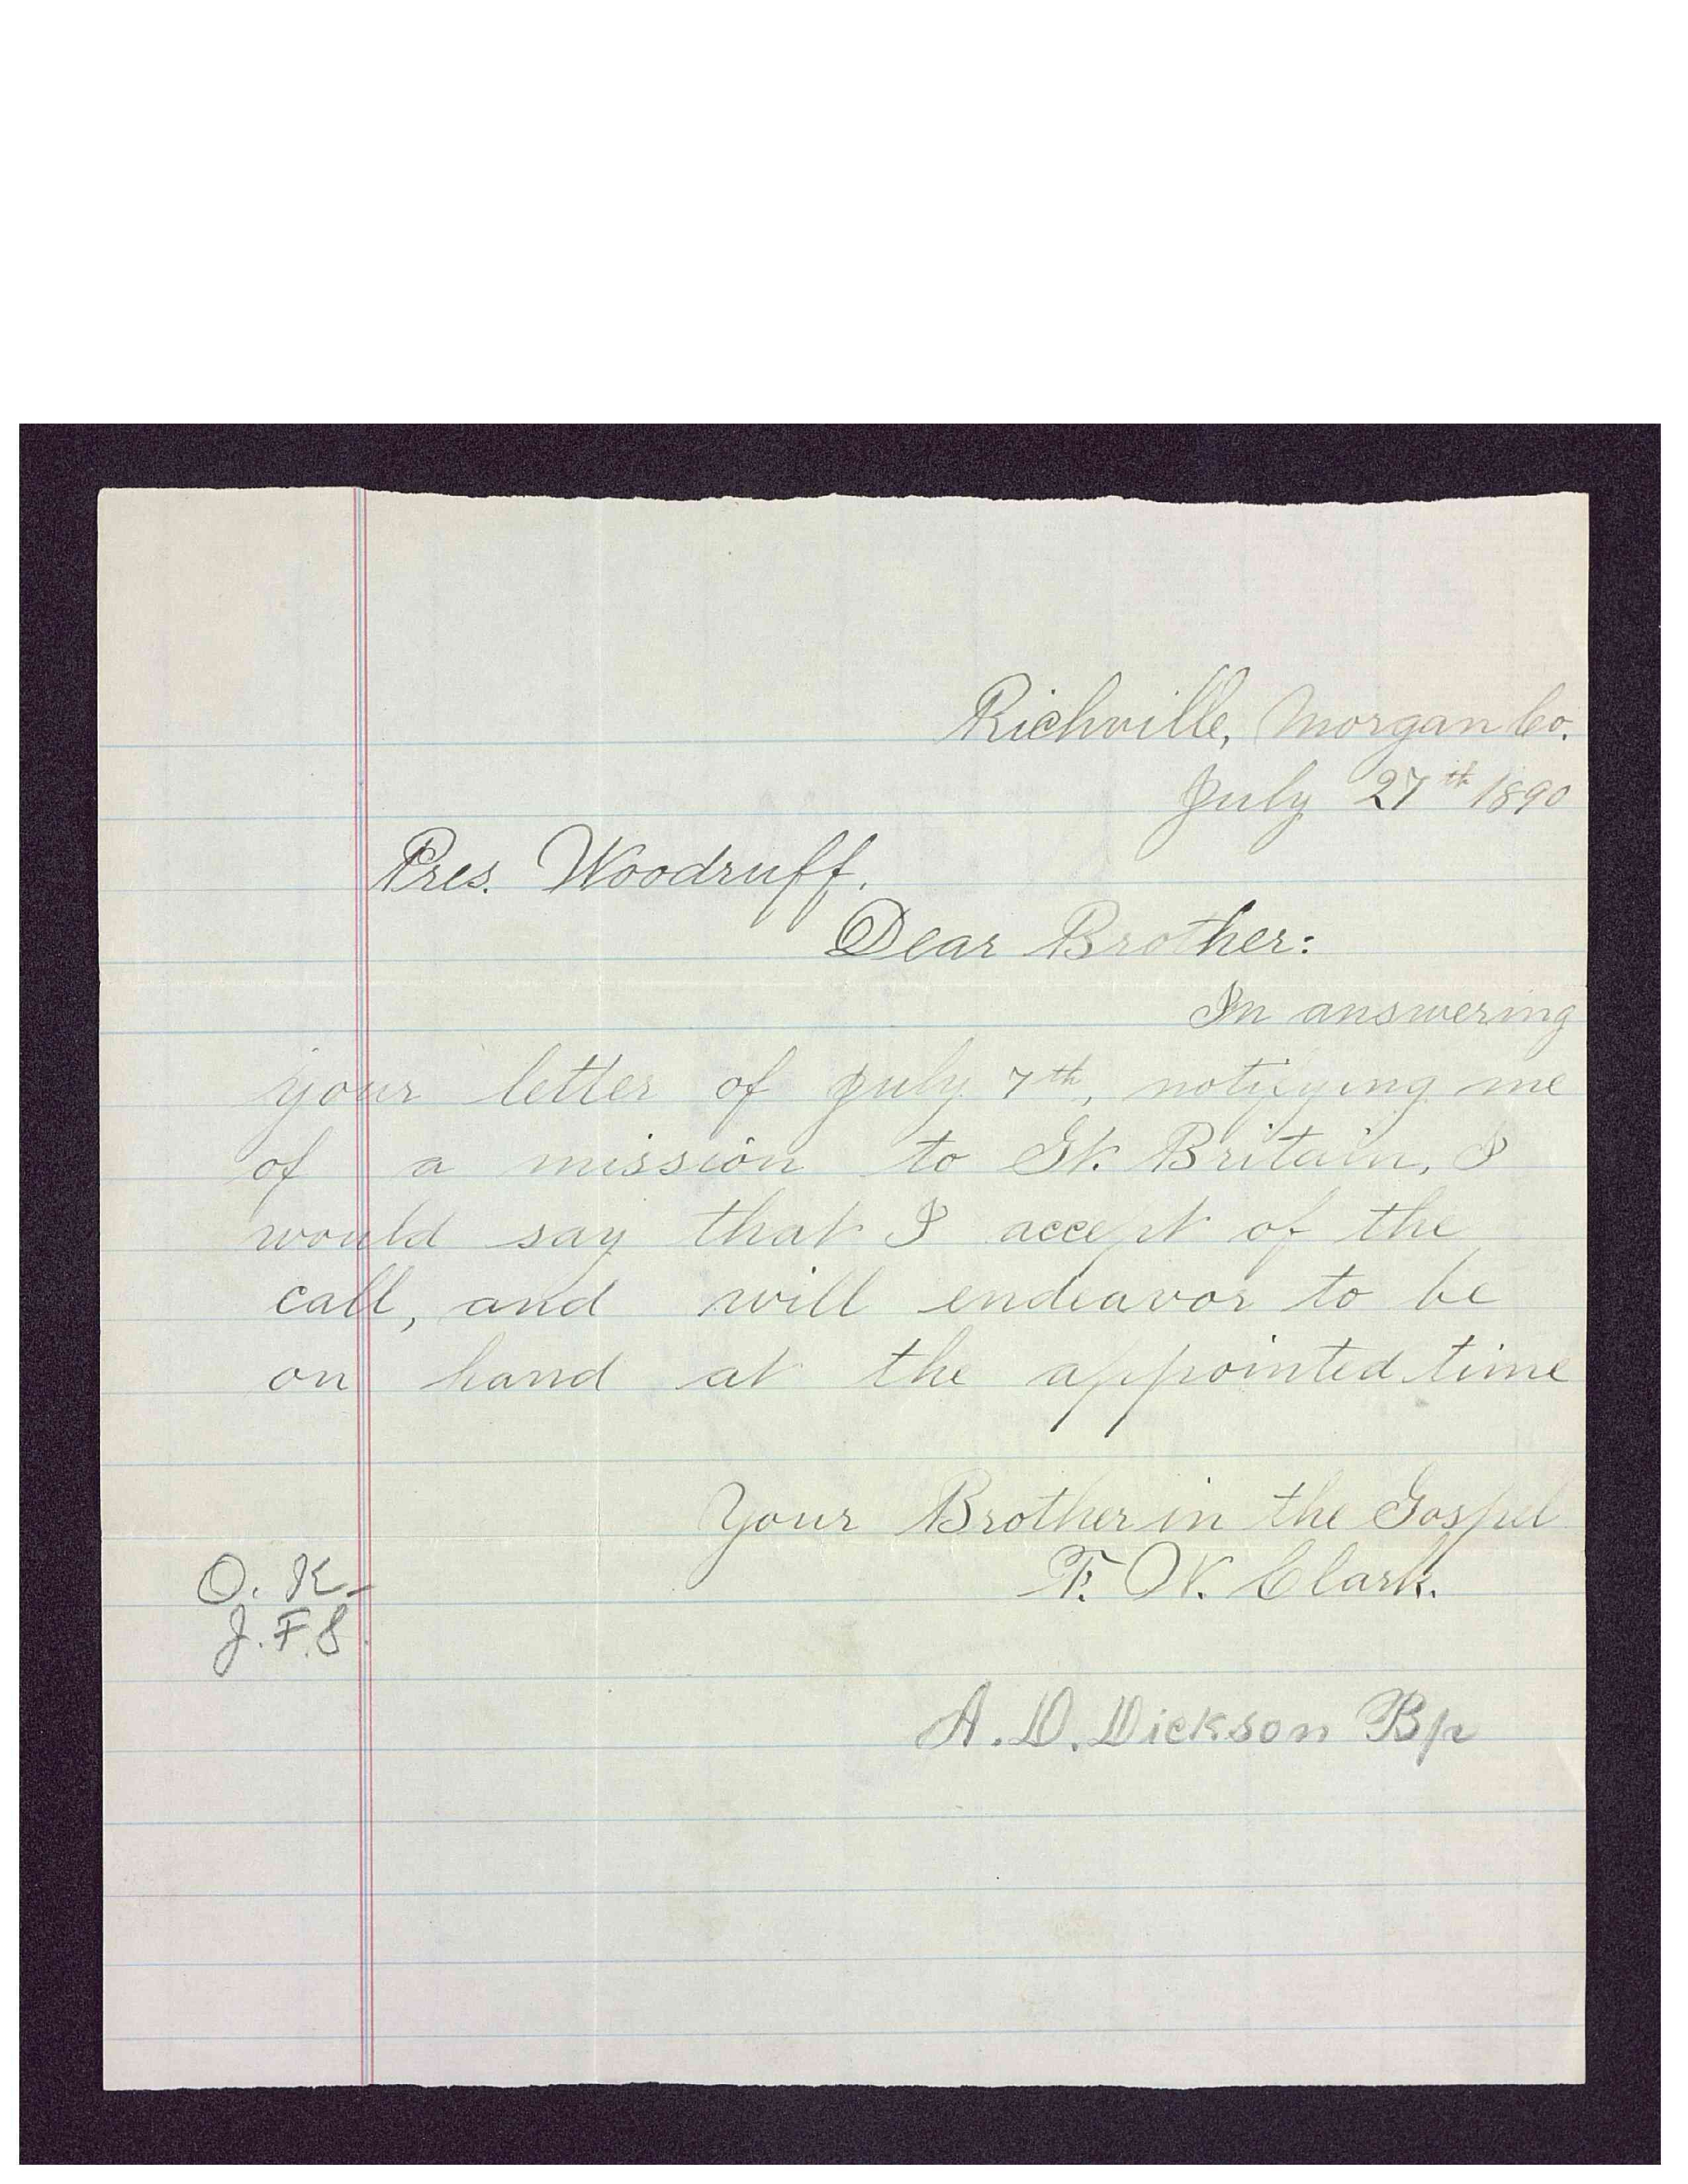 Richville, Morgan Co.
July 27th 1890
Pres. Woodruff.
Dear Brother:
In answering
your letter of July 7th, notifying me
of a mission to Gt. Britain, I
would say that I accept of the
call, and will endeavor to be
on hand at the appointed time
Your Brother in the Gospel
F. W. Clark.
O. K.
J. F. S.
A. D. Dickson Bp